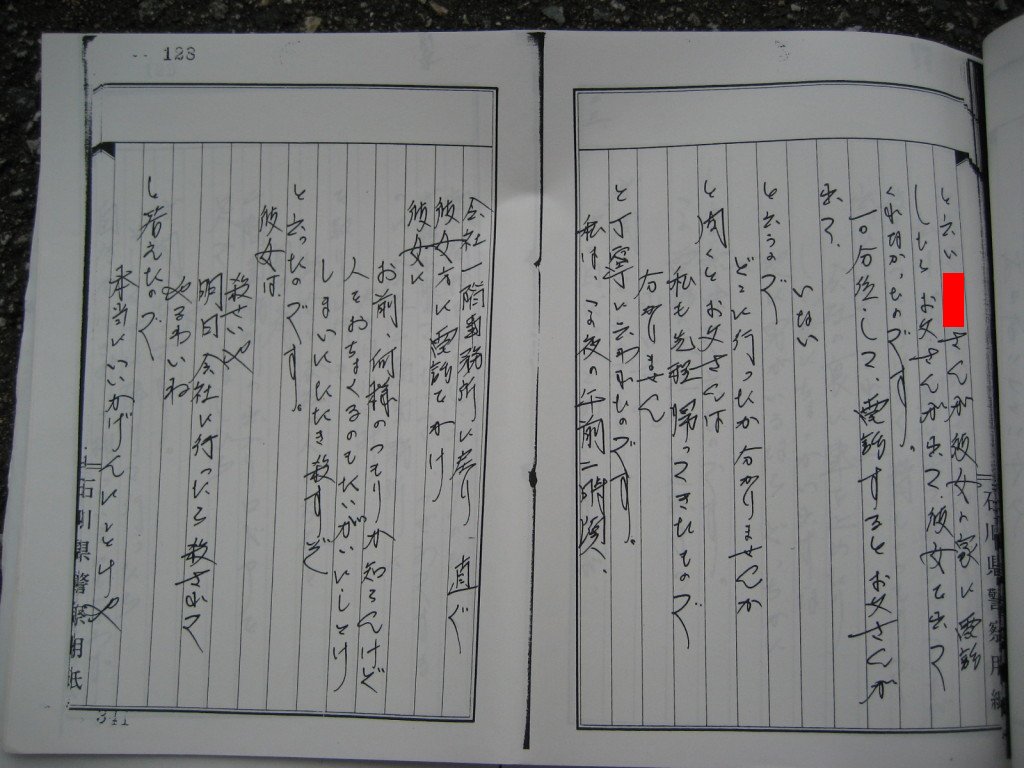 と云い
さんが彼女の家に電話
したらお父さんが出て、彼女を出して
くれなかったのです。
一〇分位して、電話するとお父さんが
出て、
いない
と云うので
どこに行ったか分かりませんか
と聞くとお父さんは
私も先程帰ってきたもので
分かりません
と丁寧に云われたのです。
私は、その後の午前二時頃、
石川県警察用紙
128
会社一階事務所に寄り、直ぐ
彼女方に電話をかけ
彼女に
お前、何様のつもりか知らんけど
人をおちょくるのもたいがいにしとけ
しまいにたたき殺すぞ
と云ったのです。
彼女は
殺せいや
明日会社に行ったら殺されて
やるわいね
と答えたので
本当にいいかげんにしとけや
石川県警察用紙
341